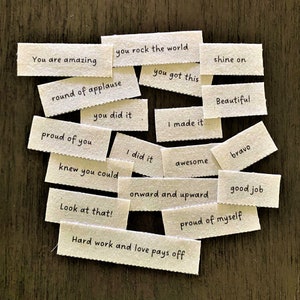 you rock the world
You are amazing
shine on
you got this
round of applause
Beautiful
you did it
I made it
proud of you
I did it
awesome
bravo
knew you could
onward and upward
good job
Look at that!
proud of myself
Hard work and love pays off